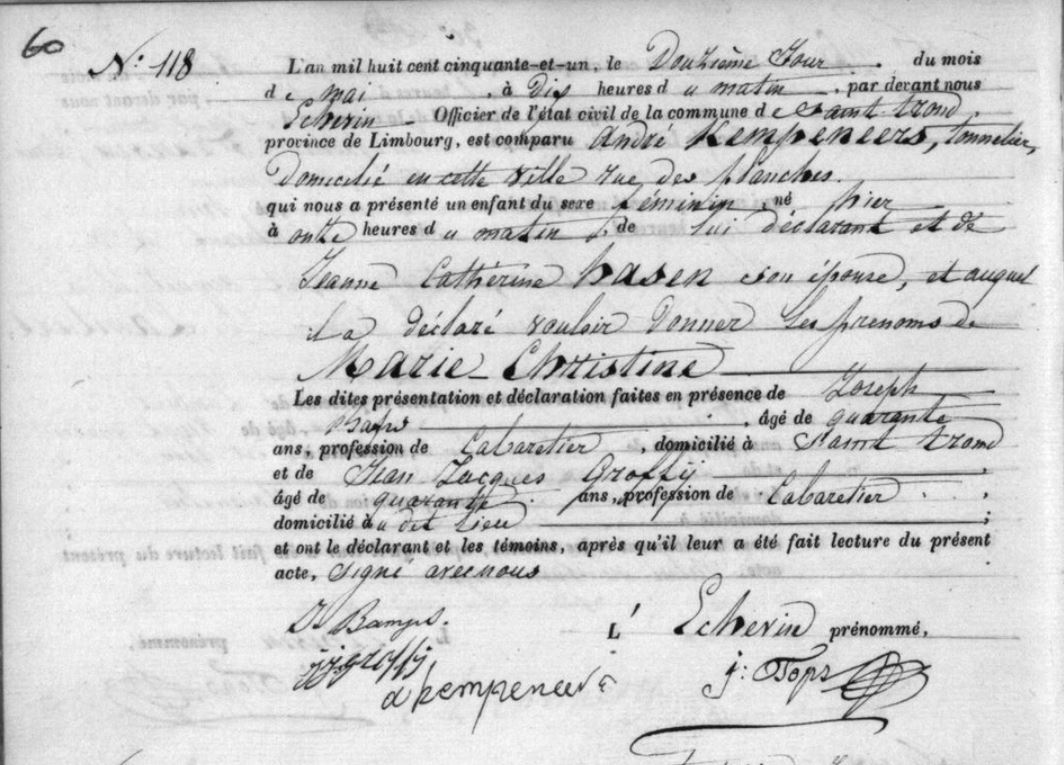 60
N: 118
L'an mil huit cent cinquante-et-un, le Douzième Jour du mois
d e mai, à dix heures d u matin, par devant nous
Echevin Officier de l'état civil de la commune d e Saint trond
province de Limbourg, est comparu André Kempeneers, tonnelier,
Domicilié en cette ville rue des planches.
qui nous a présenté un enfant du sexe féminin, né hier
à onze heures d u matin, de lui déclarant et de
Jeanne Cathérine hasen son épouse, et auquel
il a déclaré vouloir donner les prenoms de
Marie-Christine
Les dites présentation et déclaration faites en présence de Joseph
, âgé de quarante
ans, profession de Cabaretier, domicilié à Saint trond
et de Jean Jacques Groffy,
âgé de quarante ans, profession de Cabaretier,
domicilié à u dit lieu ;
et ont le déclarant et les témoins, après qu'il leur a été fait lecture du présent
acte, signé avec nous
L' Echevin prénommé,
jj groffij
a kempeneers
j: Tops